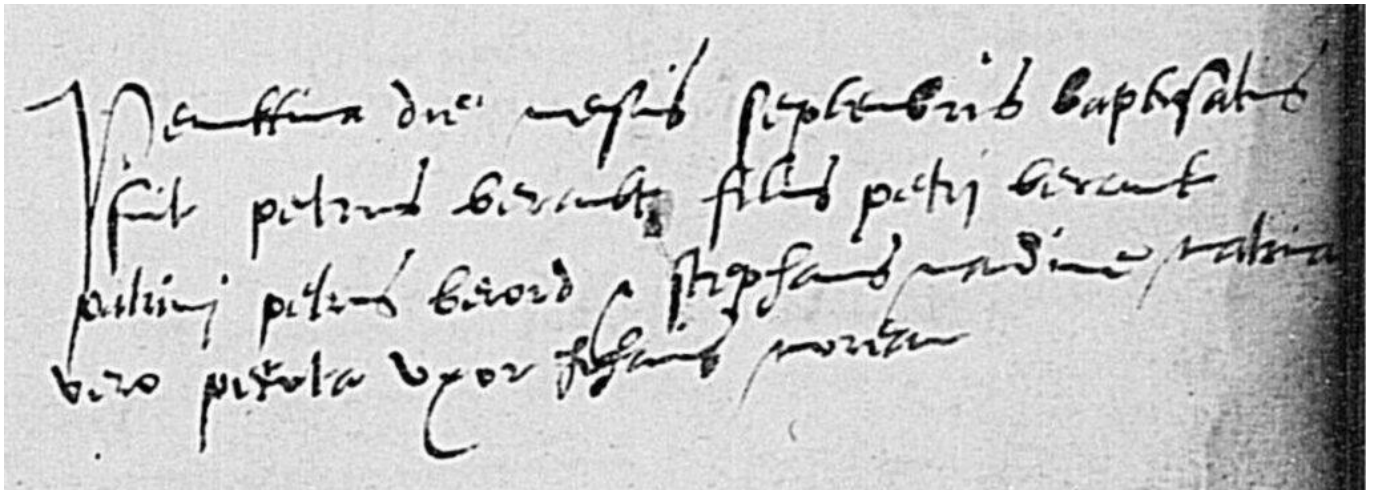 Penultima die mesis septembris baptisatus
fuit petrus berault filius petri berault
patrini petrus berord & stephanus nadine matrina
vero perota uxor stephanis moreau